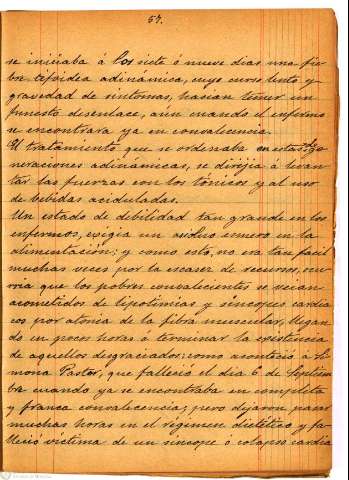 57.
se iniciaba á los siete ó nueve dias una fie
bre tifoidea adinámica, cuyo curso lento y
gravedad de sintomas, hacian temer un
funesto desenlace, aun cuando el enfermo
se encontrara ya en convalecencia.
El tratamiento que se ordenaba en estas dege
neraciones adinámicas, se dirijía á levan
tar las fuerzas con los tónicos y al uso
de bebidas aciduladas.
Un estado de debilidad tan grande en los
enfermos, exigia un asiduo esmero en la
alimentación; y como esto, no era tan facil
muchas veces por la escasez de recursos, ocu
rria que los pobres convalecientes se veian
acometidos de lipotimias y síncopes cardia
cos por atonia de la fibra muscular, llegan
do en pocas horas á terminar la existencia
de aquellos desgraciados; como aconteció á Si
mona Pastor, que falleció el dia 6 de Septiem
bre cuando ya se encontraba en completa
y franca convalecencia; pero dejaron pasar
muchas horas en el régimen dietético y fa
lleció víctima de un síncope ó colapso cardia